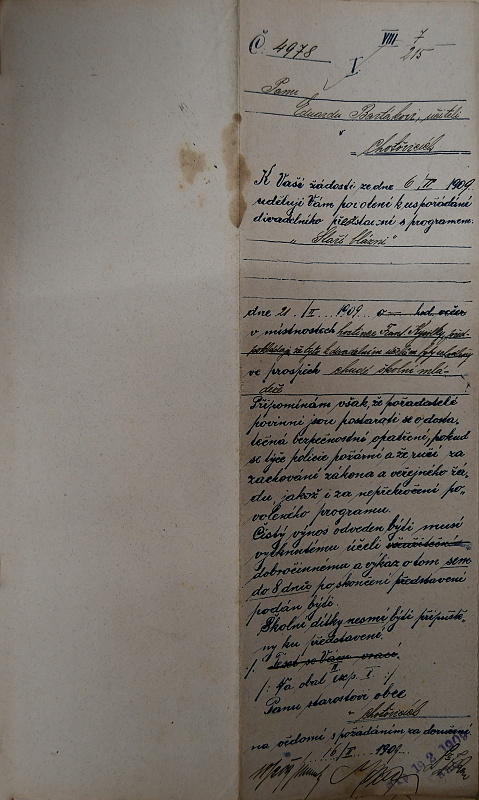 Č. 4978 VIII 7
215
I.
Panu
Eduardu Bartákovi, učiteli
v
Chotěvicích
K Vaší žádosti ze dne 6/II 1909
uděluji Vám povolení k uspořádání
divadelního představení s programem:
„Staří blázni“
dne 21./II ... 1909. o hod. večer
v místnostech hostince
ve prospěch chudé školní mlá-
deže
Připomínám však, že pořadatelé
povinni jsou postarati se o dosta-
tečná bezpečnostní opatření, pokud
se týče policie požární a že ručí za
zachování zákona a veřejného řá-
du, jakož i za nepřekročení po-
voleného programu.
Čistý výnos odveden býti musí
vytknutému účeli
dobročinnému a výkaz o tom sem
do 8 dnů po skončení představení
podán býti.
Školní dítky nesmí býti připuště-
ny ku představení.
:/. Text se Vám vrací.
II
/: Na obal exp. I. :/
Panu starostovi obce
v
na vědomí s požádáním za doručení.
16/II 1909.
19.2.1909